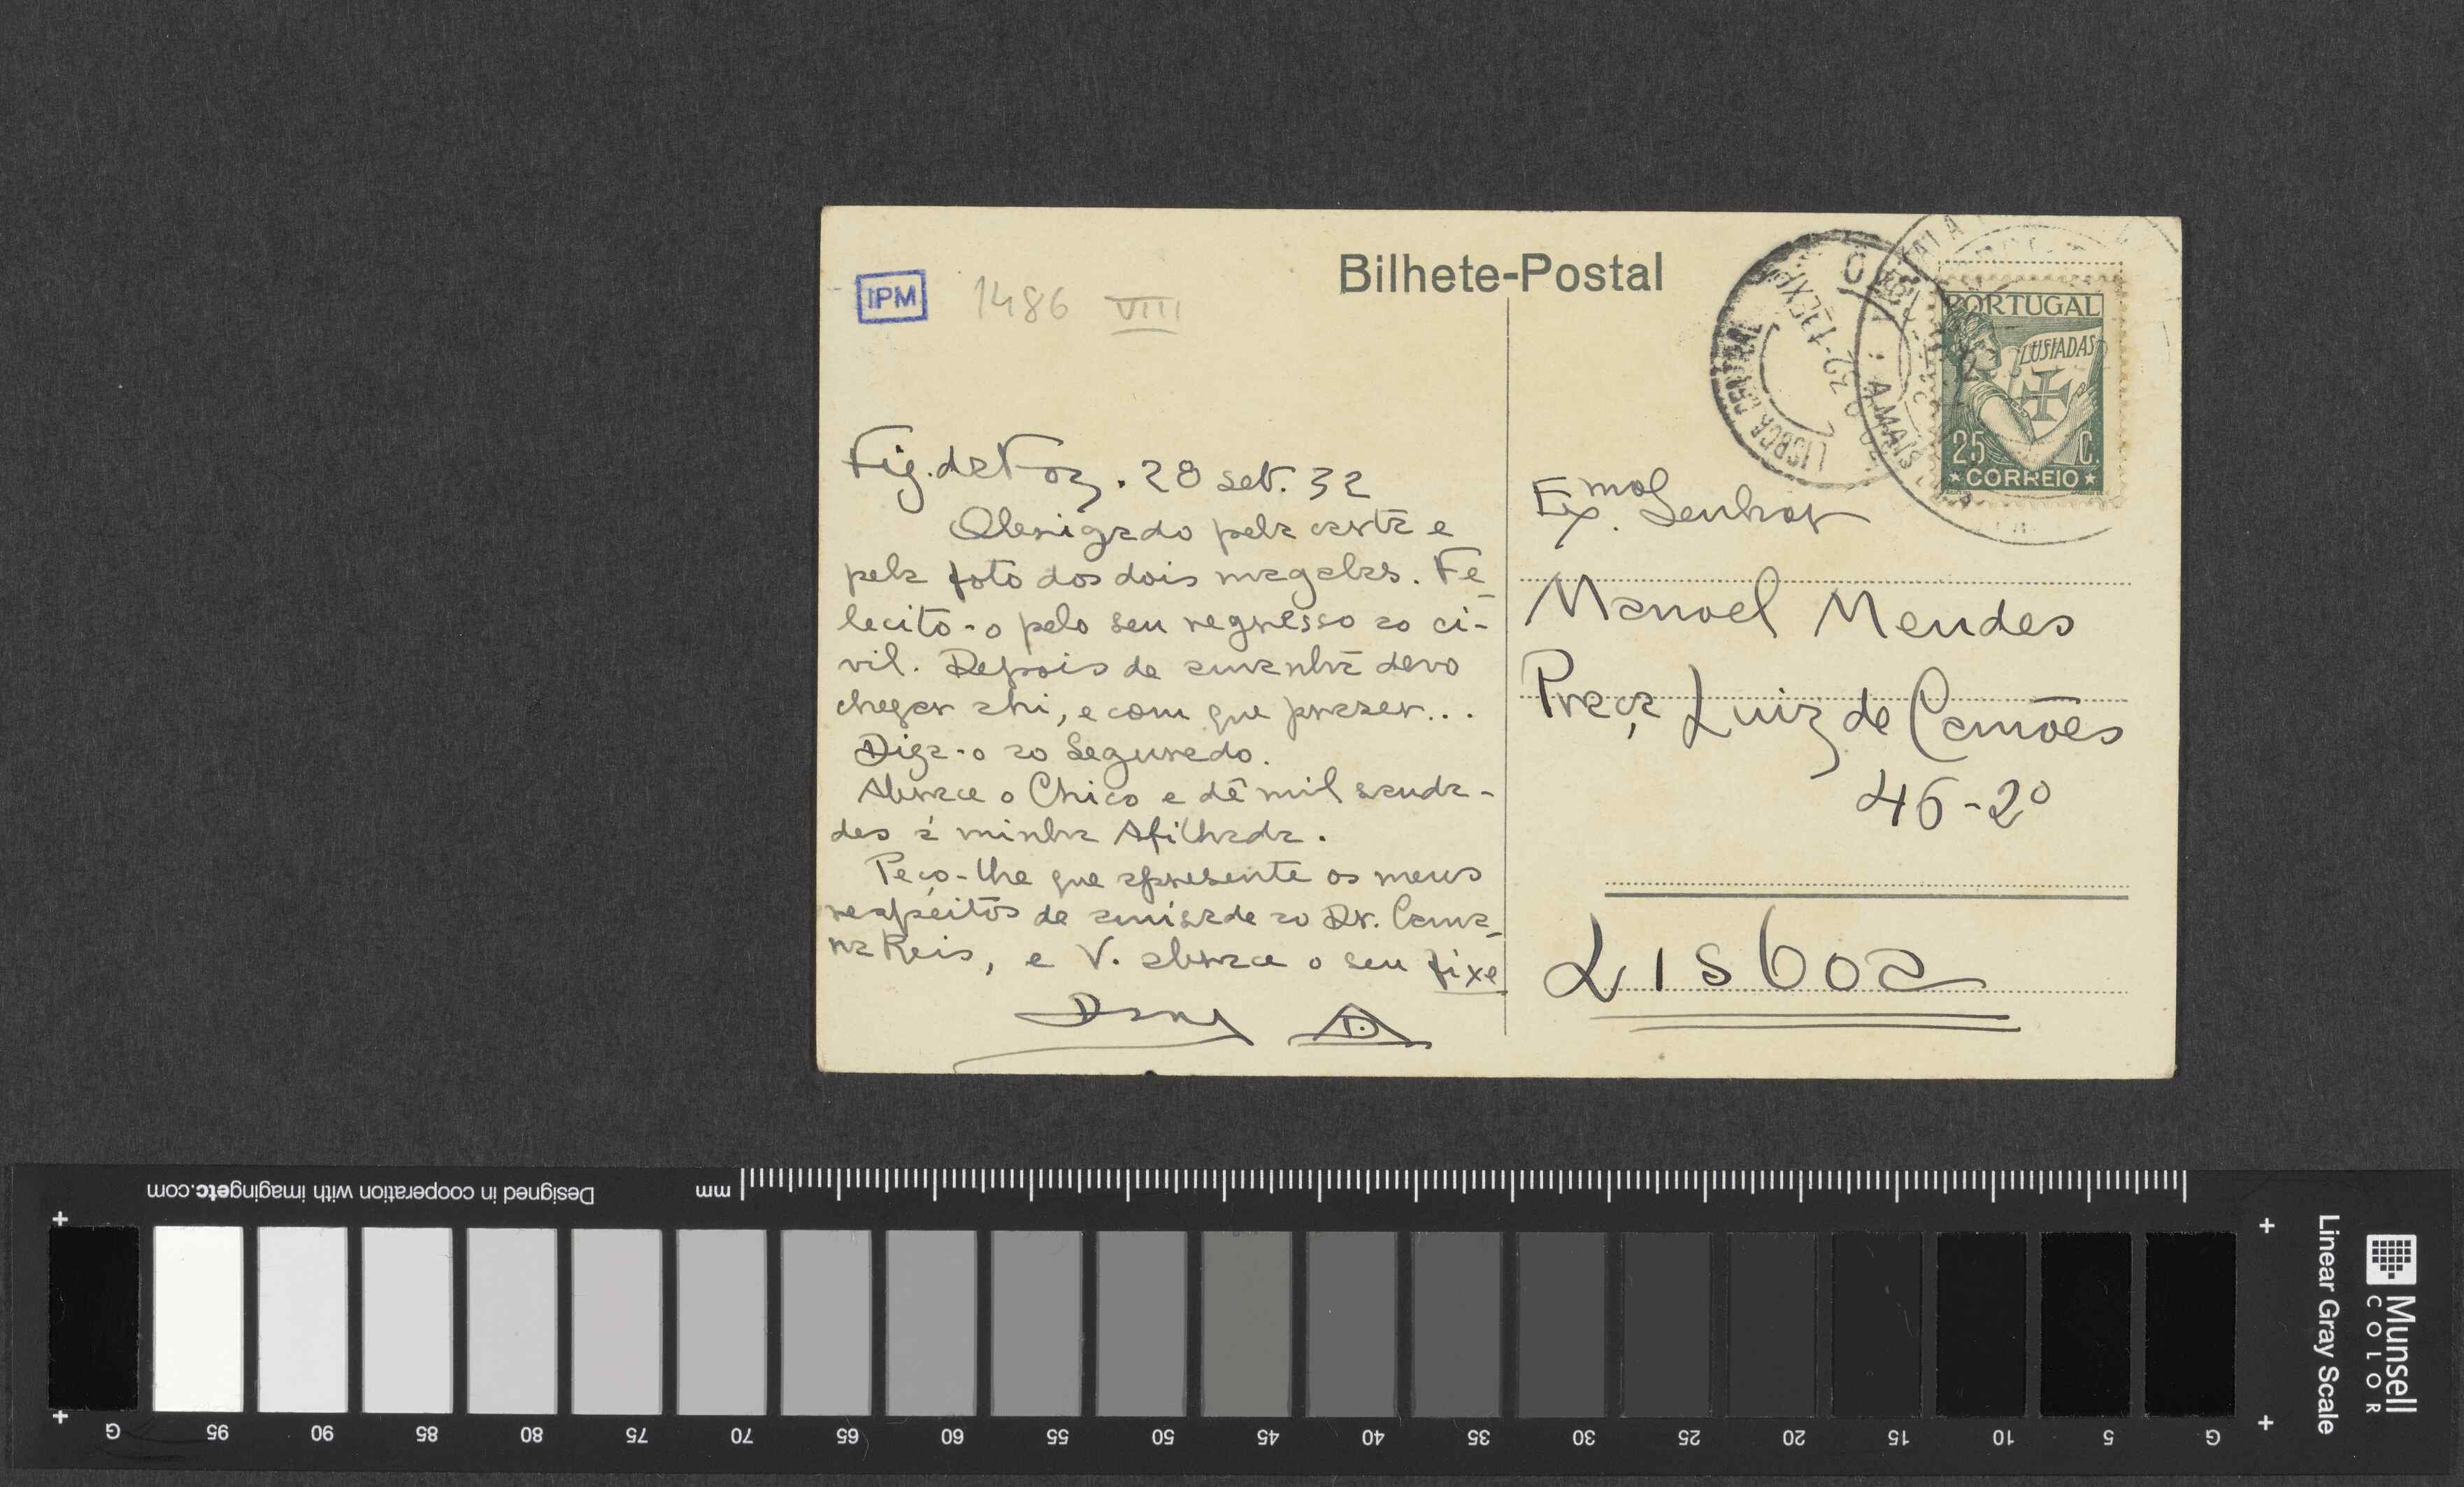 Bilhete-Postal
IPM 1486 VIII
Fig. da Foz. 28 set. 32
Obrigado pela carta e
pela foto dos dois magalas. Fe-
lecito-o pelo seu regresso ao ci-
vil. Depois de amanhã devo
chegar ahi, e com que prazer...
Diga-o ao Segurado.
Abrace o Chico e dê mil sauda-
des á minha Afilhada.
Peço-lhe que apresente os meus
respeitos de amisade ao Dr. Cama-
ra Reis, e V. abrace o seu fixe
D.
Exmo. Senhor
Manoel Mendes
Praça Luiz de Camões
46-2º
Lisboa
PORTUGAL
LUSIADAS
25 C.
CORREIO
LISBOA CENTRAL
Designed in cooperation with imagingetc.com
mm
G 95 90 85 80 75 70 65 60 55 50 45 40 35 30 25 20 15 10 5 G
Linear Gray Scale
Munsell
COLOR